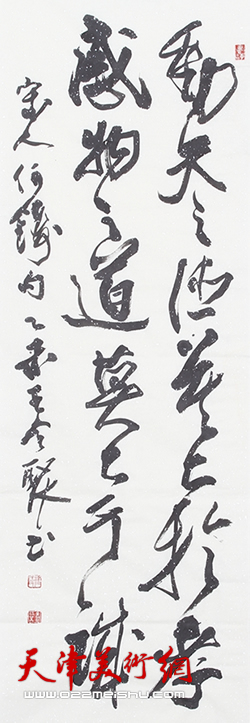 動天之德莫大於孝
感物之道莫大于誠
宋人何鑄句乙未王全聚书
天津美術網
www.022meishu.com